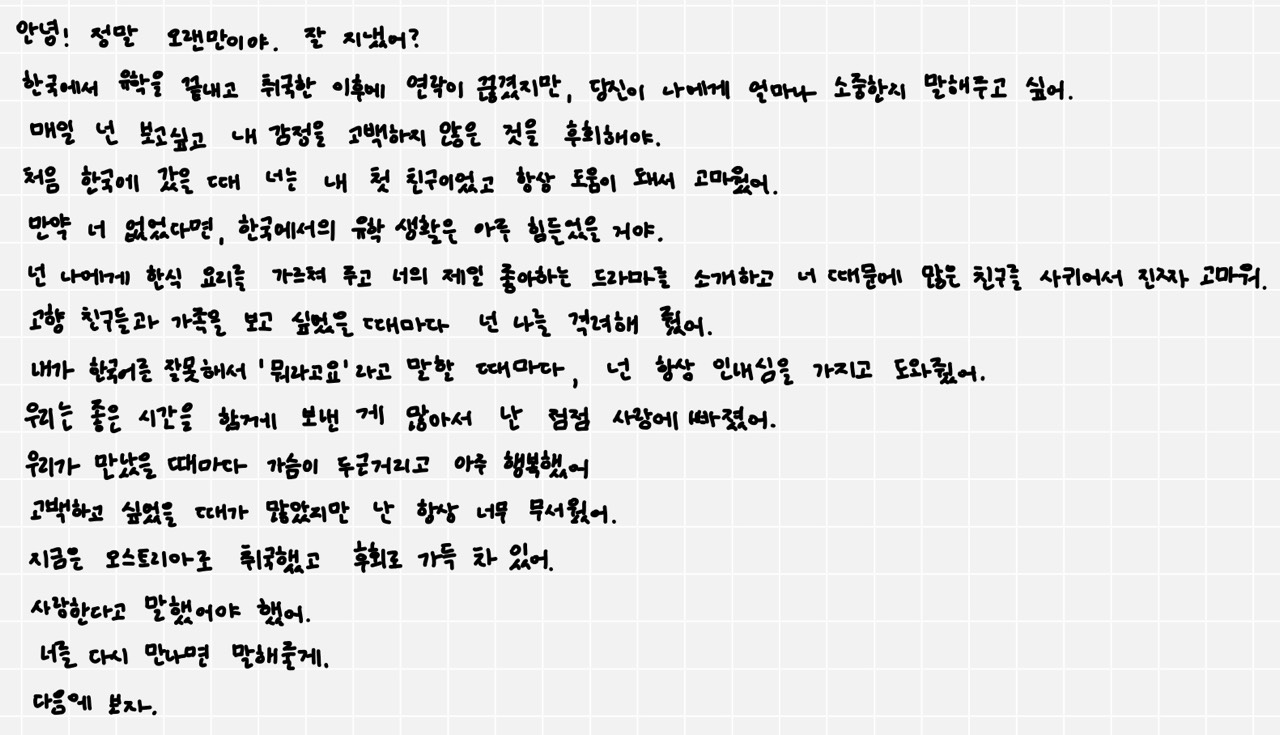 안녕! 정말 오랜만이야. 잘 지냈어?
한국에서 유학을 끝내고 취국한 이후에 연락이 끊겼지만, 당신이 나에게 얼마나 소중한지 말해주고 싶어.
매일 넌 보고싶고 내 감정을 고백하지 않은 것을 후회해야.
처음 한국에 갔을 때 너는 내 첫 친구이었고 항상 도움이 돼서 고마웠어.
만약 너 없었다면, 한국에서의 유학 생활은 아주 힘들었을 거야.
넌 나에게 한식 요리를 가르쳐 주고 너의 제일 좋아하는 드라마를 소개하고 너 때문에 많은 친구를 사귀어서 진짜 고마워.
고향 친구들과 가족을 보고 싶었을 때마다 넌 나를 격려해 줬어.
내가 한국어를 잘못해서 '뭐라고요'라고 말할 때마다, 넌 항상 인내심을 가지고 도와줬어.
우리는 좋은 시간을 함께 보낸 게 많아서 난 점점 사랑에 빠졌어.
우리가 만났을 때마다 가슴이 두근거리고 아주 행복했어
고백하고 싶었을 때가 많았지만 난 항상 너무 무서웠어.
지금은 오스트리아로 취국했고 후회로 가득 차 있어.
사랑한다고 말했어야 했어.
너를 다시 만나면 말해줄게.
다음에 보자.